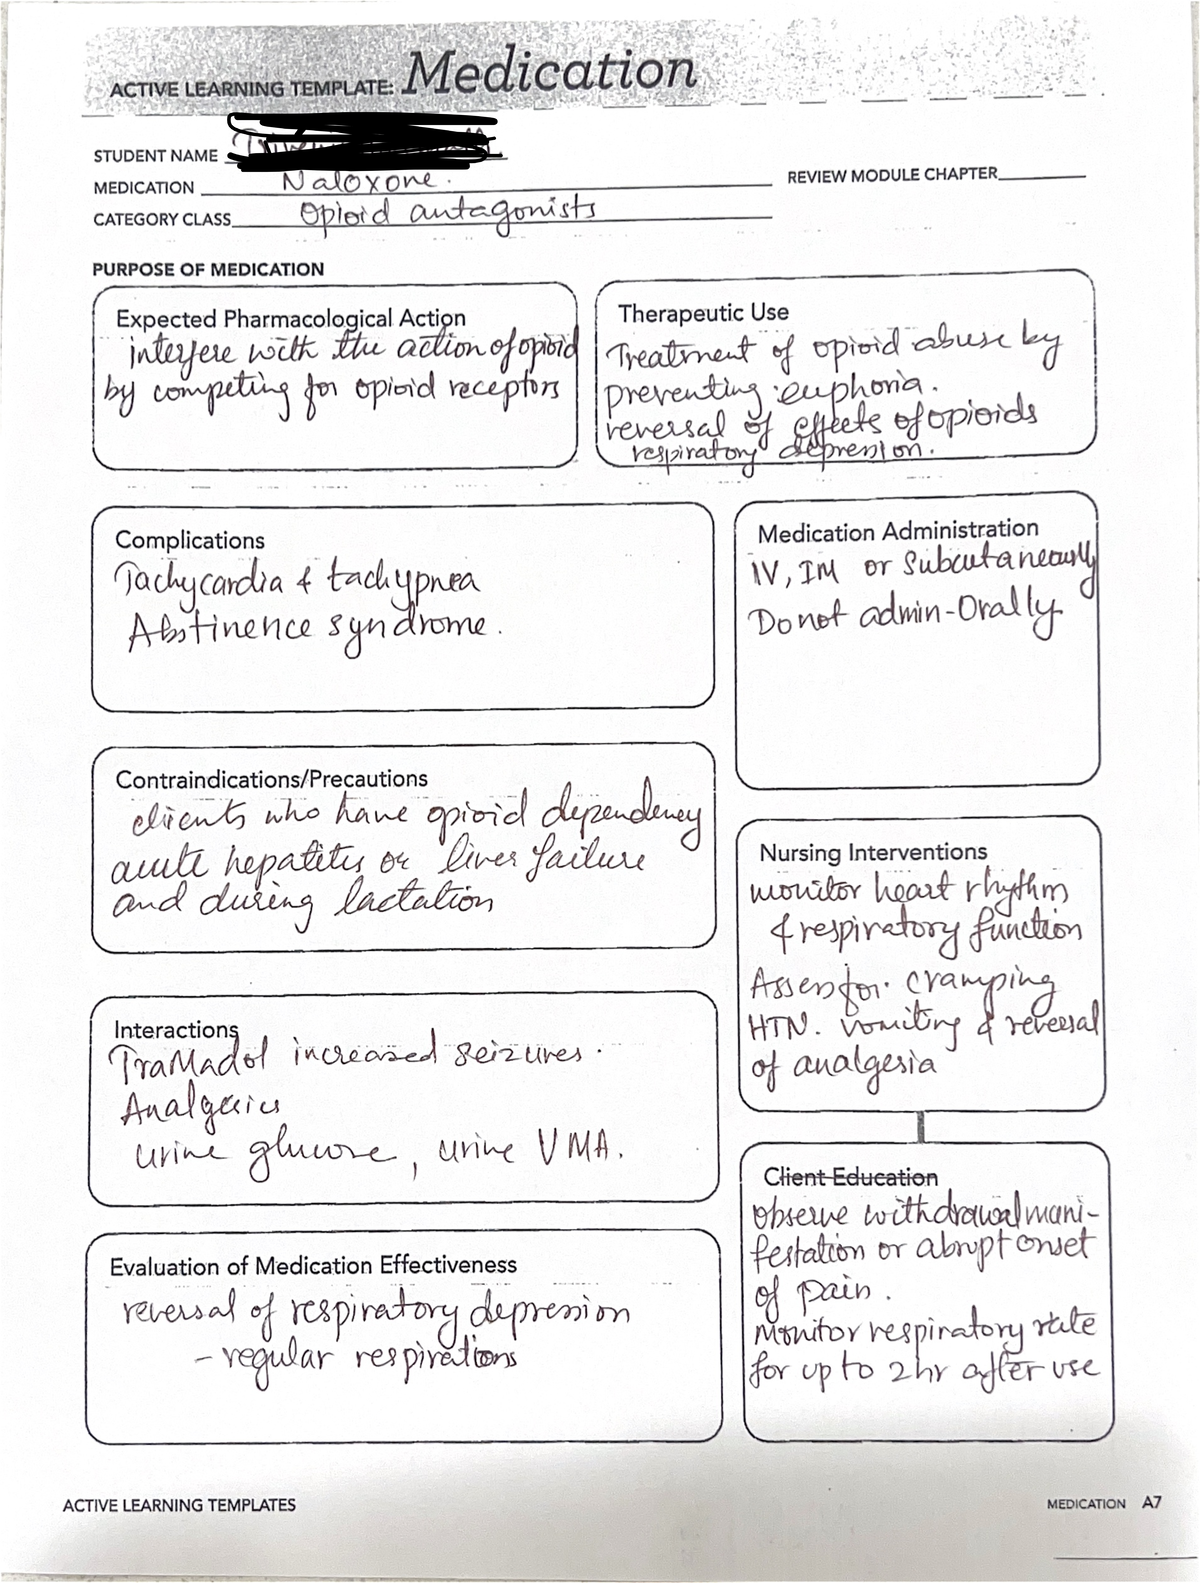 ACTIVE LEARNING TEMPLATE: Medication
STUDENT NAME
MEDICATION Naloxone.
REVIEW MODULE CHAPTER
CATEGORY CLASS Opioid antagonists
PURPOSE OF MEDICATION
Expected Pharmacological Action
interfere with the action of opioid
by competing for opioid receptors
Therapeutic Use
Treatment of opioid abuse by
preventing euphoria.
reversal of effects of opioids
respiratory depression.
Complications
Tachycardia & tachypnea
Abstinence syndrome.
Medication Administration
IV, IM or Subcutaneously
Do not admin-Orally.
Contraindications/Precautions
clients who have opioid dependency
acute hepatitis or liver failure
and during lactation
Nursing Interventions
monitor heart rhythm
& respiratory function
Assess for. cramping
HTN. vomiting & reversal
of analgesia
Interactions
TraMadol increased seizures.
Analgesics
urine glucose, urine VMA.
Client Education
observe withdrawal mani-
festation or abrupt onset
of pain.
Monitor respiratory rate
for up to 2hr after use
Evaluation of Medication Effectiveness
reversal of respiratory depression
- regular respirations
ACTIVE LEARNING TEMPLATES
MEDICATION A7